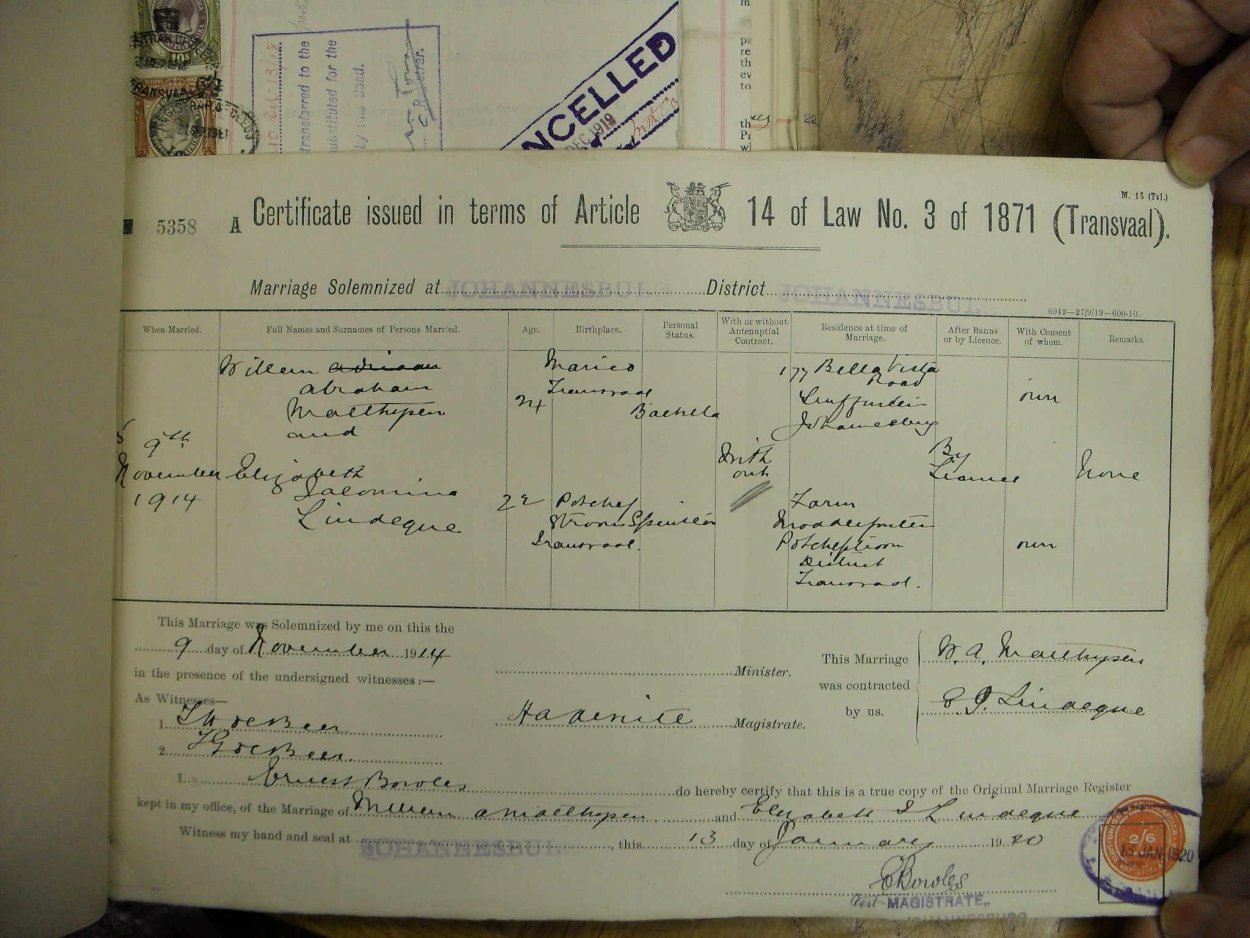 CANCELLED
DEC 1919
transferred to the
substituted for the
5358 A Certificate issued in terms of Article 14 of Law No. 3 of 1871 (Transvaal).
M. 15 (Tvl.)
Marriage Solemnized at JOHANNESBU District JOHANNESBU
6942—27/9/19—600-10.
When Married. Full Names and Surnames of Persons Married. Age. Birthplace. Personal Status. With or without Antenuptial Contract. Residence at time of Marriage. After Banns or by Licence. With Consent of whom. Remarks.
Willem adriaan Marico 177 Bella Vista
abraham Transvaal Road
Matthysen 24 Bachelor own
and Johannesburg
9th With By
November Elizabeth out Licence None
1914 Jacomina 22 Potchef Farm
Lindeque stroom Spinster Modderfontein
Transvaal. Potchefstroom own
District
Transvaal.
This Marriage was Solemnized by me on this the
9 day of November 1914
in the presence of the undersigned witnesses:—
Minister.
This Marriage was contracted by us.
W. A. Matthysen
E J Lindeque
As Witnesses—
1. de Beer
2. de Beer
Magistrate.
I. Ernest Bowles do hereby certify that this is a true copy of the Original Marriage Register
kept in my office, of the Marriage of Willem A Matthysen and Elizabeth J Lindeque
Witness my hand and seal at JOHANNESBU, this 13 day of January 1920
E Bowles
MAGISTRATE,
JOHANNESBURG
2/6
13 JAN 1920